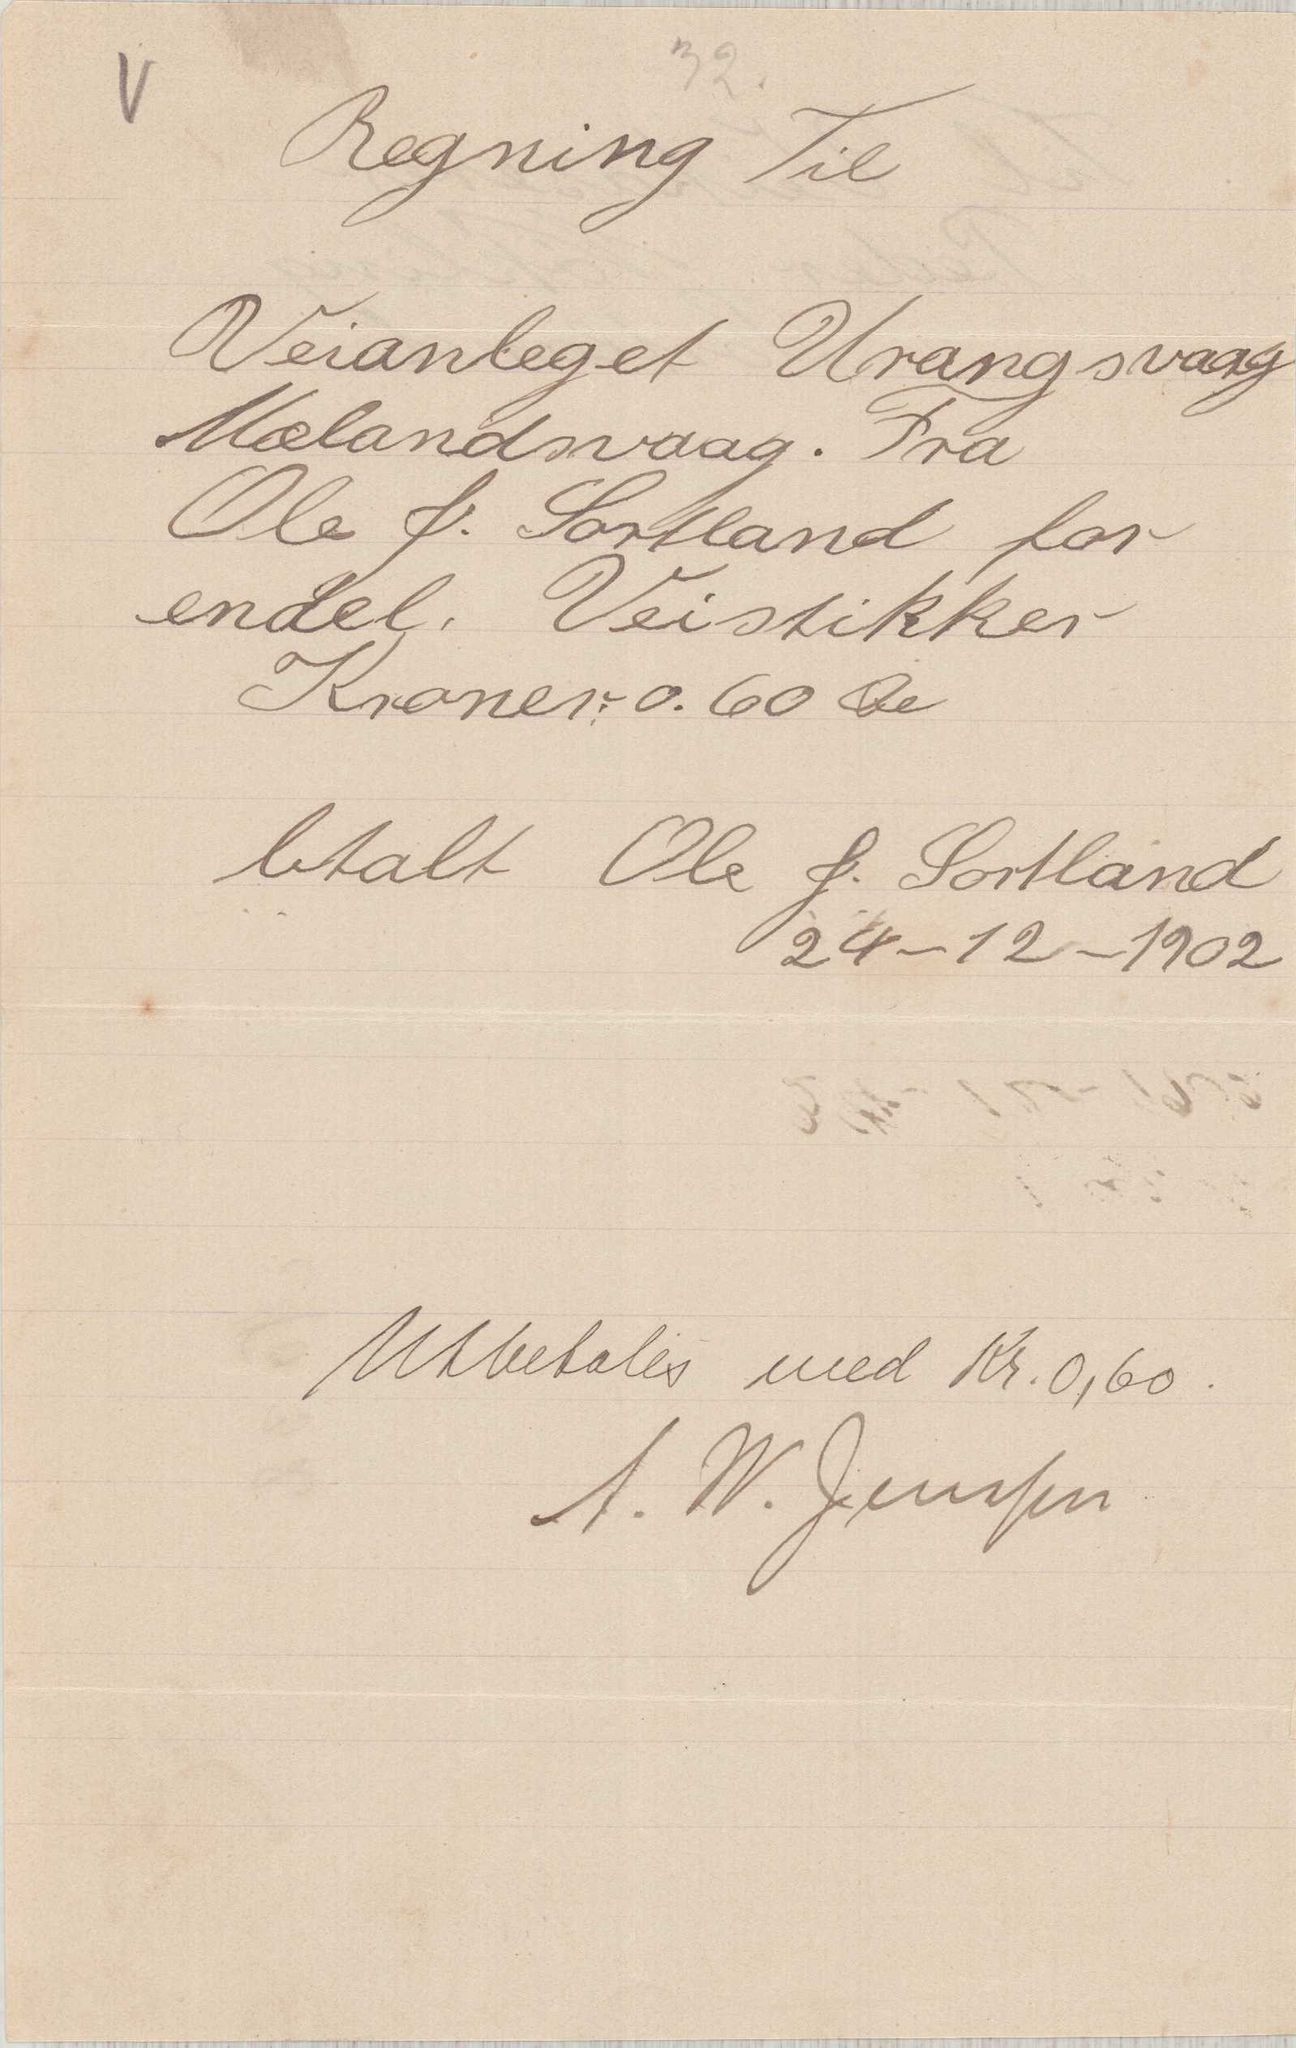 V
32.
Regning Til
Veianleget Urangsvaag
Mælandsvaag. Fra
Ole J. Sortland for
endel. Veistikker
Kroner: 0. 60 Øe
btalt Ole J. Sortland
24-12-1902
Utbetales med Kr. 0,60.
A. W. Jenssen